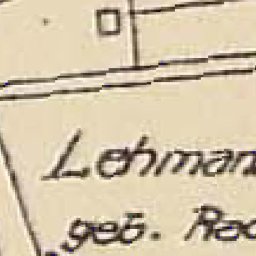 Lehman
geb. Rad